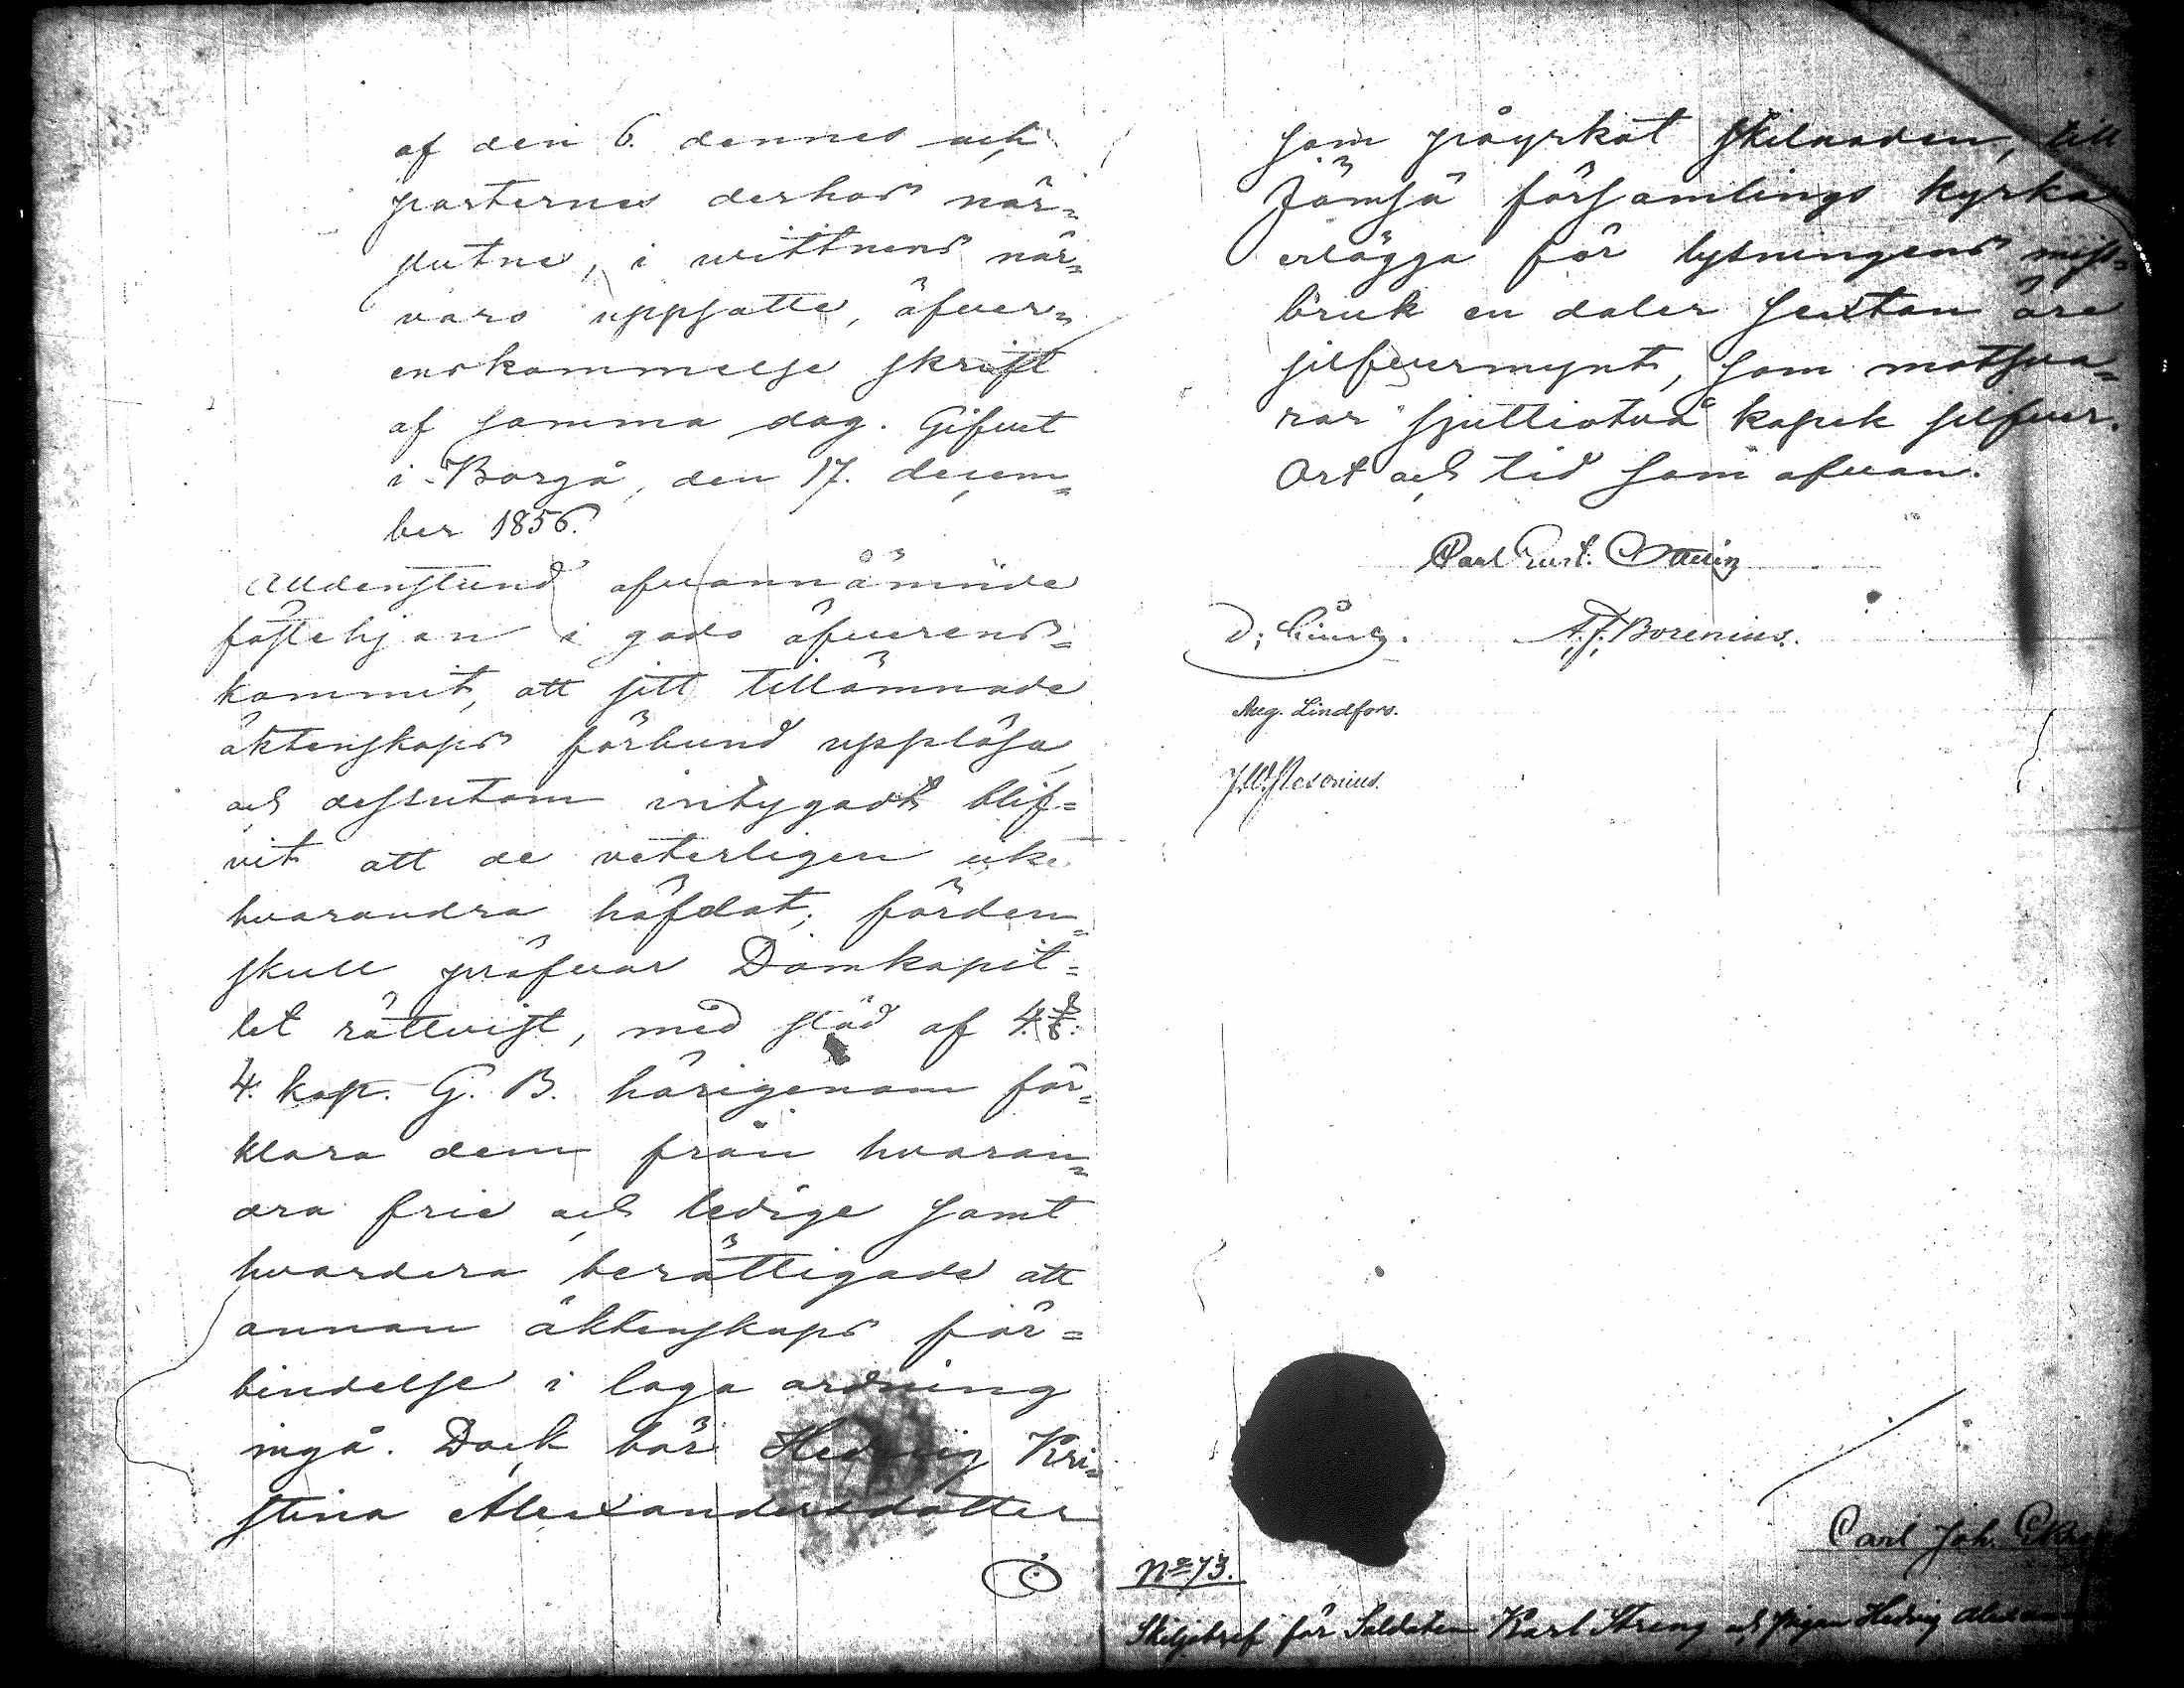 af den 6. dennes och
parternes derhos när-
slutne, i wittnens när-
varo uppsatte, öfver-
enskommelse skrift
af samma dag. Gifvet
i Borgå, den 17. decem-
ber 1856.
Alldenstund ofvannämnde
fästehjon i godo öfverens-
kommit, att sitt tillämnade
äktenskaps förbund upplösa,
och dessutom intygadt blif-
vit att de veterligen icke
hvarandra häfdat; förden-
skull pröfvar Domkapit-
let rättvist, med stöd af 4. §.
4. kap. G. B. härigenom för-
klara dem från hvaran-
dra frie och ledige samt
hvardera berättigade att
annan äktenskaps för-
bindelse i laga ordning
ingå. Dock bör Hedvig Kri-
stina Alexandersdotter
som påyrkat skilnaden, till
Jämsä församlings kyrka
erlägga för lysningens miss-
bruk en daler sextan öre
silfvermynt, som motsva-
rar sjuttiotvå kopek silfver.
Ort och tid som ofvan.
Carl Gust. Ottelin
A. F. Borenius.
Aug. Lindfors.
Carl Joh.
No 73.
Skiljebref för Soldaten Karl Streng och pigan Hedvig